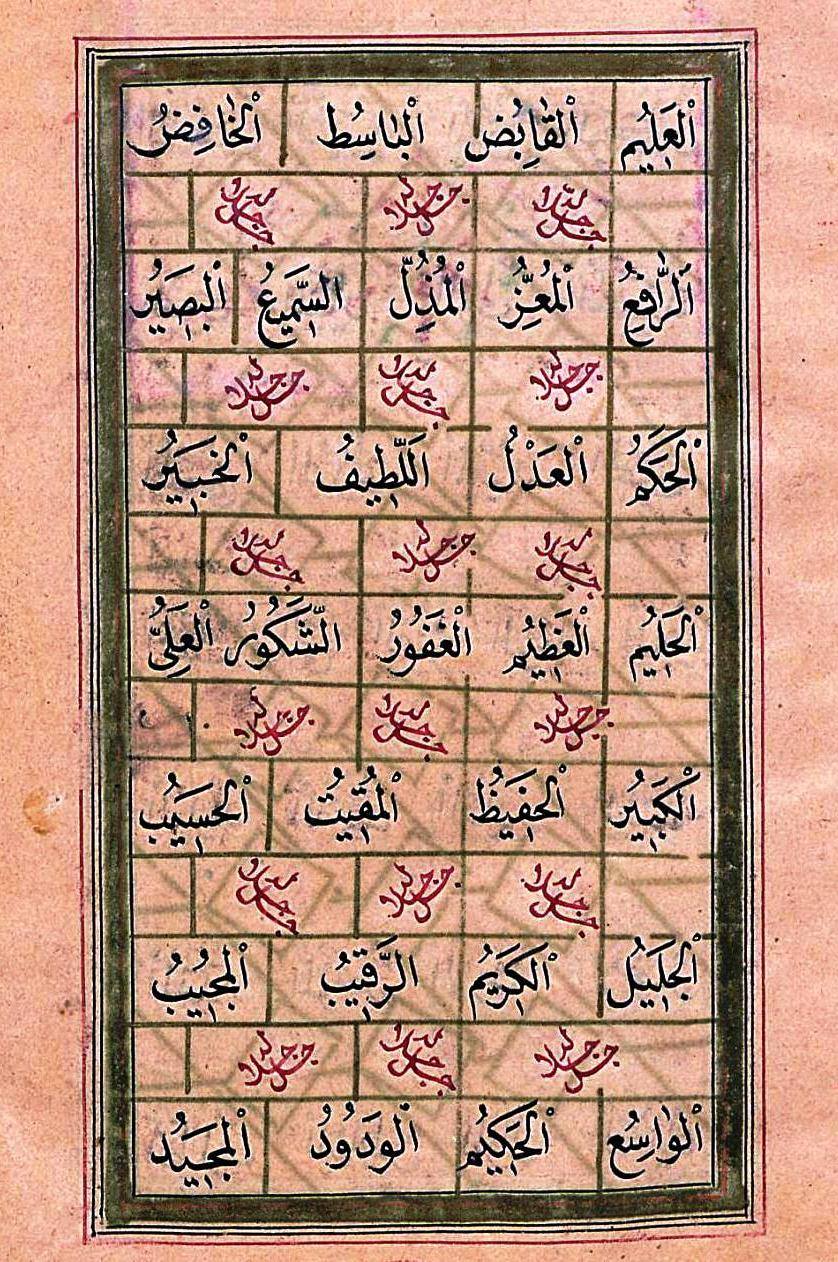 اَلْعَلِيُم اَلْقَابِضُ اَلْبَاسِط اَلْخَافِضُ
جل جلاله جل جلاله جل جلاله
اَلرَّافِعُ اَلْمُعِزُّ اَلْمُذِلُّ السَّمِيعُ اَلْبَصِيُر
جل جلاله جل جلاله جل جلاله
اَلْحَكَمُ اَلْعَدْلُ اَللَّطِيفُ اَلْخَبِيُر
جل جلاله جل جلاله جل جلاله
اَلْحَلِيُم اَلْعَظِيُم اَلْغَفُورُ الشَّكُورُ اَلْعَلِىُّ
جل جلاله جل جلاله جل جلاله
اَلْكَبِيُر اَلْحَفِيُظ اَلْمُقِيتُ اَلْحَسِيُب
جل جلاله جل جلاله جل جلاله
اَلْجَلِيُل اَلْكَرِيُم اَلرَّقِيُب اَلْمُجِيُب
جل جلاله جل جلاله جل جلاله
اَلْوَاسِعُ اَلْحَكِيُم اَلْوَدُودُ اَلْمَجِيُد